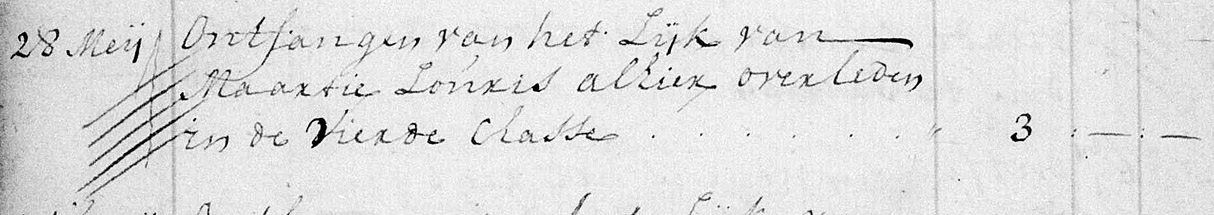 28 Meij Ontfangen van het Lijk van
Maartie Louris alhier overleden
in de vierde Classe . . . . . . . " 3 : — : —